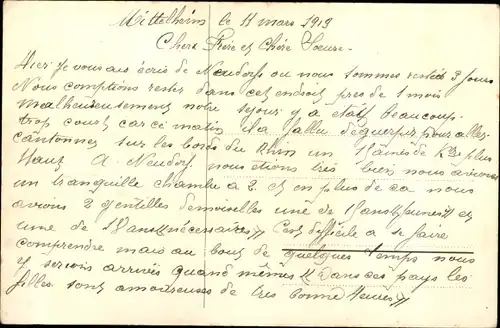 Mittelheim le 11 mars 1919
Chers Frère et Chère Soeur
Hier je vous ais écris de Neudorf ou nous sommes restés 3 jours
Nous comptions rester dans cet endroit près de 1 mois
malheureusement notre sejour y a était beaucoup
trop court car ce matin il a fallu déguerpir pour aller
cantonner sur les bords du Rhin un 15aines de Kms plus
Haut A Neudorf nous étions très bien nous avions
un tranquille chambre a 2 et en plus de ca nous
avions 2 gentelles demoiselles une de 17 ans et
une de 18 ans C'est difficile a se faire
comprendre mais au bout de quelques temps nous
y serions arrivés quand mêmes Dans ces pays les
filles sont amoureuses de très bonne Heures